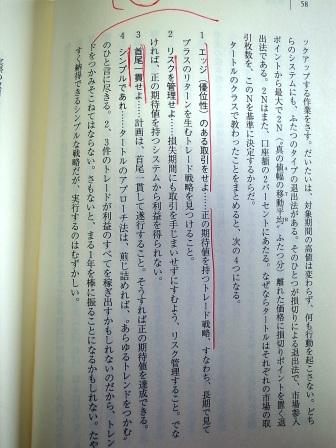 58
ックアップする作業をさす。だいたいは、対象期間の高値は変わらず、何も行動を起こさない。どち
らのシステムにも、ふたつのタイプの退出法がある。そのひとつが損切りによる退出法で、市場参入
ポイントから最大で2N（“真の値幅の移動平均”ふたつ分）離れた価格に損切りポイントを置く退
出法である。2Nはまた、口座額の2パーセントにあたる。なぜならタートルはそれぞれの市場の取
引枚数を、このNを基準に決定するからだ。
タートルのクラスで教わったことをまとめると、次の4つになる。
1 エッジ（優位性）のある取引をせよ……正の期待値を持つトレード戦略、すなわち、長期で見て
プラスのリターンを生むトレード戦略を見つけること。
2 リスクを管理せよ……損失期間にも取引を手じまいせずにすむよう、リスク管理すること。でな
ければ、正の期待値を持つシステムから利益を得られない。
3 首尾一貫せよ……計画は、首尾一貫して遂行すること。そうすれば正の期待値を達成できる。
4 シンプルであれ……タートルのアプローチ法は、煎じ詰めれば、“あらゆるトレンドをつかむ”
のひと言に尽きる。2、3件のトレードが利益のすべてを稼ぎ出すかもしれないのだから、トレン
ドをつかみそこねてはならない。さもないと、まる1年を棒に振ることになるかもしれない。たや
すく納得できるシンプルな戦略だが、実行するのはむずかしい。